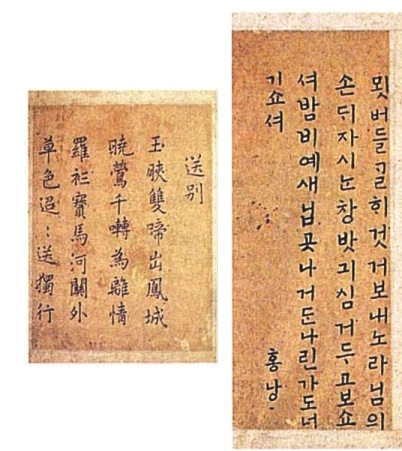 묏버들ᄀᆞᆯᄒᆡ것거보내노라님의
손ᄃᆡ자시ᄂᆞᆫ창밧긔심거두고보쇼
셔밤비예새닙곳나거든나린가도너
기쇼셔
홍낭
送别
玉脥雙啼出鳳城
暁鶯千囀為離情
羅衫寶馬河關外
草色迢〻送獨行